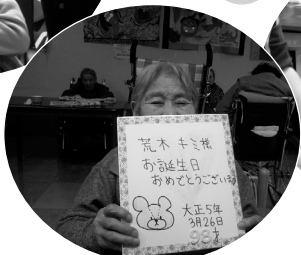 荒木 キミ様
お誕生日
おめでとうございます
大正5年
3月26日
98才